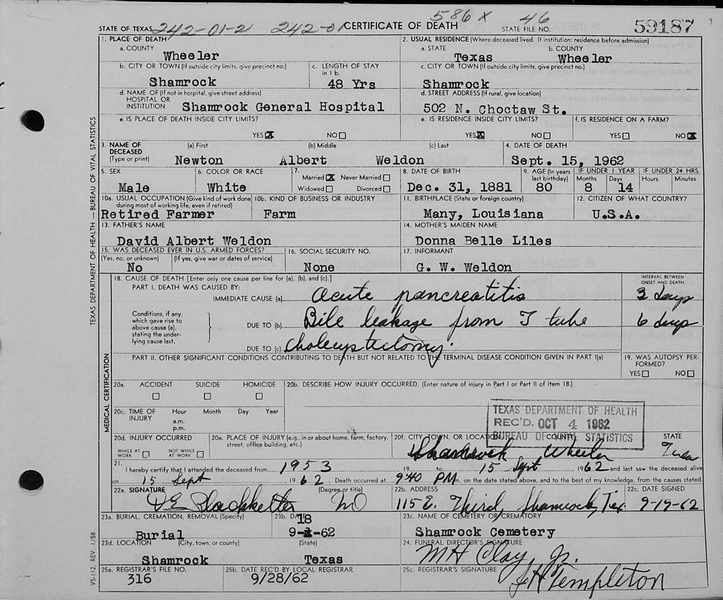 586 x 46
STATE OF TEXAS 242-01-2 242-01 CERTIFICATE OF DEATH STATE FILE NO. 59187
1. PLACE OF DEATH
a. COUNTY
Wheeler
2. USUAL RESIDENCE (Where deceased lived. If institution: residence before admission)
a. STATE b. COUNTY
Texas Wheeler
b. CITY OR TOWN (If outside city limits, give precinct no.) c. LENGTH OF STAY in 1 b.
Shamrock 48 Yrs
c. CITY OR TOWN (If outside city limits, give precinct no.)
Shamrock
d. NAME OF (If not in hospital, give street address) HOSPITAL OR INSTITUTION
Shamrock General Hospital
d. STREET ADDRESS (If rural, give location)
502 N. Choctaw St.
e. IS PLACE OF DEATH INSIDE CITY LIMITS?
YES☒ NO☐
e. IS RESIDENCE INSIDE CITY LIMITS?
YES☒ NO☐
f. IS RESIDENCE ON A FARM?
YES☐ NO☒
3. NAME OF DECEASED (Type or print)
(a) First (b) Middle (c) Last
Newton Albert Weldon
4. DATE OF DEATH
Sept. 15, 1962
5. SEX
Male
6. COLOR OR RACE
White
7. Married☒ Never Married☐
Widowed☐ Divorced☐
8. DATE OF BIRTH
Dec. 31, 1881
9. AGE (In years last birthday) IF UNDER 1 YEAR IF UNDER 24 HRS.
Months Days Hours Minutes
80 8 14
10a. USUAL OCCUPATION (Give kind of work done during most of working life, even if retired)
Retired Farmer
10b. KIND OF BUSINESS OR INDUSTRY
Farm
11. BIRTHPLACE (State or foreign country)
Many, Louisiana
12. CITIZEN OF WHAT COUNTRY?
U.S.A.
13. FATHER'S NAME
David Albert Weldon
14. MOTHER'S MAIDEN NAME
Donna Belle Liles
15. WAS DECEASED EVER IN U.S. ARMED FORCES?
(Yes, no, or unknown) (If yes, give war or dates of service)
No
16. SOCIAL SECURITY NO.
None
17. INFORMANT
G. W. Weldon
18. CAUSE OF DEATH [Enter only one cause per line for (a), (b), and (c).]
INTERVAL BETWEEN ONSET AND DEATH
PART I. DEATH WAS CAUSED BY:
IMMEDIATE CAUSE (a) Acute pancreatitis 3 days
Conditions, if any, which gave rise to above cause (a), stating the underlying cause last.
DUE TO (b) Bile leakage from T tube 6 days
DUE TO (c) Cholecystectomy.
PART II. OTHER SIGNIFICANT CONDITIONS CONTRIBUTING TO DEATH BUT NOT RELATED TO THE TERMINAL DISEASE CONDITION GIVEN IN PART I(a)
19. WAS AUTOPSY PERFORMED?
YES☐ NO☐
20a. ACCIDENT SUICIDE HOMICIDE
☐ ☐ ☐
20b. DESCRIBE HOW INJURY OCCURRED. (Enter nature of injury in Part I or Part II of Item 18.)
20c. TIME OF INJURY
Hour Month Day Year
a.m.
p.m.
TEXAS DEPARTMENT OF HEALTH
REC'D. OCT 4 1962
BUREAU OF VITAL STATISTICS
20d. INJURY OCCURRED
WHILE AT WORK ☐ NOT WHILE AT WORK ☐
20e. PLACE OF INJURY (e.g., in or about home, farm, factory, street, office building, etc.)
20f. CITY, TOWN, OR LOCATION COUNTY STATE
Shamrock Wheeler Texas
21. I hereby certify that I attended the deceased from 1953 19 to 15 Sept 1962 and last saw the deceased alive
on 15 Sept 1962 Death occurred at 9:40 PM on the date stated above, and to the best of my knowledge, from the causes stated.
22a. SIGNATURE (Degree or title)
MD
22b. ADDRESS
115 E. Third Shamrock, Tex
22c. DATE SIGNED
9-19-62
23a. BURIAL, CREMATION, REMOVAL (Specify)
Burial
23b. DATE
18
9-62
23c. NAME OF CEMETERY OR CREMATORY
Shamrock Cemetery
23d. LOCATION (City, town, or county) (State)
Shamrock Texas
24. FUNERAL DIRECTOR'S SIGNATURE
M H Clay, Jr.
25a. REGISTRAR'S FILE NO.
316
25b. DATE REC'D BY LOCAL REGISTRAR
9/28/62
25c. REGISTRAR'S SIGNATURE
Templeton
TEXAS DEPARTMENT OF HEALTH — BUREAU OF VITAL STATISTICS
MEDICAL CERTIFICATION
VS-112, REV. 1/58